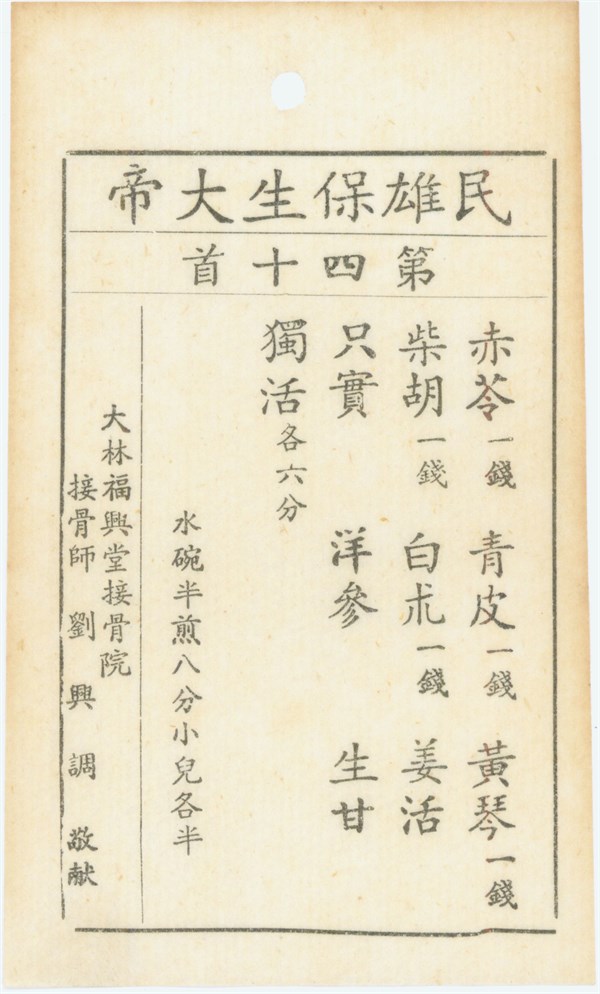 民雄保生大帝
第四十首
赤苓一錢 青皮一錢 黃琴一錢
柴胡一錢 白朮一錢 姜活
只實 洋參 生甘
獨活各六分
水碗半煎八分小兒各半
大林福興堂接骨院
接骨師 劉興調 敬献